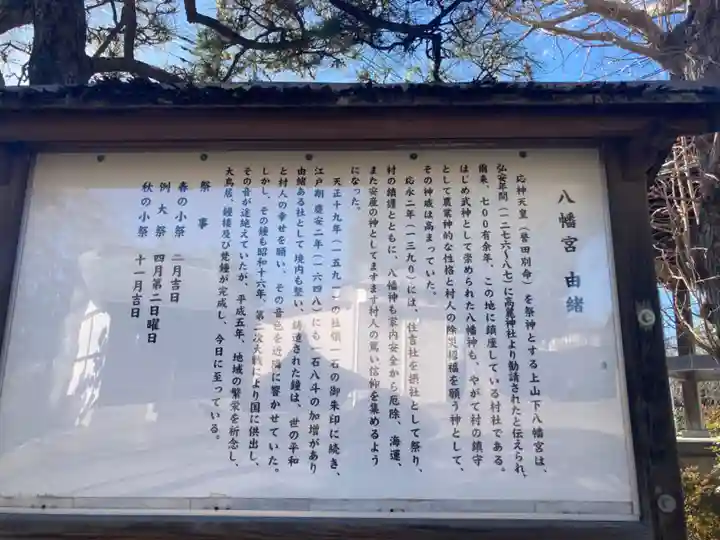 八幡宮 由緒
応神天皇（誉田別命）を祭神とする上山下八幡宮は、
弘安年間（一二七六〜八七）に高麗神社より勧請されたと伝えられ、
爾来、七００有余年、この地に鎮座している村社である。
はじめ武神として崇められた八幡神も、やがて村の鎮守
として農業神的な性格と村人の除災招福を願う神として、
その神威は高まっていた。
応永二年（一三九０）には、住吉社を摂社として祭り、
村の鎮護とともに、八幡神も家内安全から厄除、海運、
また安産の神としてますます村人の篤い信仰を集めるよう
になった。
天正十九年（一五九一）の社領一石の御朱印に続き、
江戸期慶安二年（一六四八）にも一石八斗の加増があり
由緒ある社として境内も整い、鋳造された鐘は、世の平和
と村人の幸せを願い、その音色を近隣に響かせていた。
しかし、その鐘も昭和十六年、第二次大戦により国に供出し、
その音が途絶えていたが、平成五年、地域の繁栄を祈念し、
大鳥居、鐘楼及び梵鐘が完成し、今日に至っている。
祭事
春の小祭 二月吉日
例大祭 四月第二日曜日
秋の小祭 十一月吉日